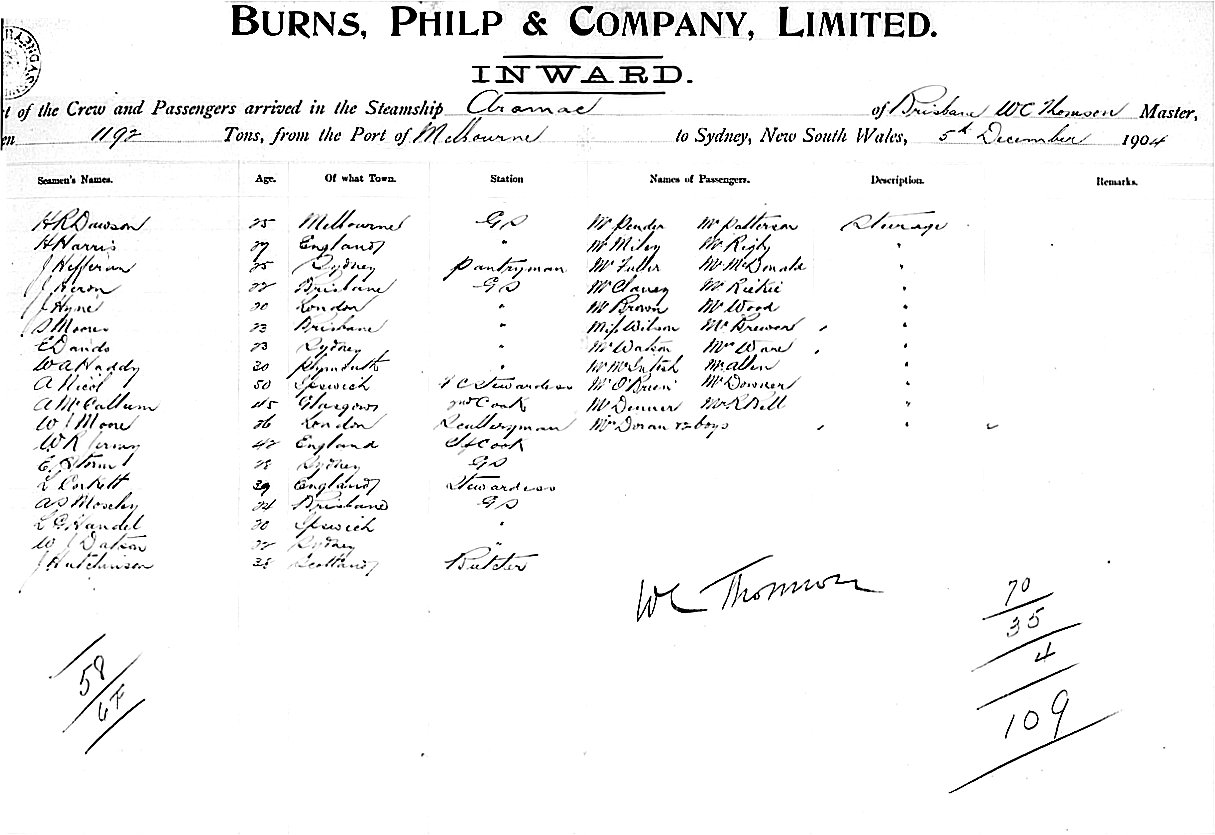 BURNS, PHILP & COMPANY, LIMITED.
INWARD.
t of the Crew and Passengers arrived in the Steamship Aramac of Brisbane WC Thomson Master,
en 1192 Tons, from the Port of Melbourne to Sydney, New South Wales, 5th December 1904
Seamen's Names. Age. Of what Town. Station Names of Passengers. Description. Remarks.
H R Dawson 25 Melbourne GS Mr Pender Mr Patterson Steerage
H Harris 29 England " Mr Miley Mr Rigby "
J Hefferan 25 Sydney Pantryman Mr Fuller Mr McDonald "
J Heron 22 Brisbane GS Mr Clancy Mr Rickie "
J Hyne 20 London " Mr Brown Mr Wood "
S Moore 23 Brisbane " Miss Wilson Mr Brewer "
E Dando 23 Sydney " Mr Watson Mr Ware "
W A Haddy 30 Plymouth " Mr McIntosh Mr Allen "
A Nicol 50 Ipswich Stewardess Mr O'Brien Mr Downer "
A McCallum 45 Glasgow 2nd Cook Mr Denner Mr R Bell "
W J Moore 26 London Sculleryman Mrs Doran & 2 boys "
W R 42 England Cook
E Storm 28 Sydney GS
L Corkett 39 England Stewardess
A S Moseley 24 Brisbane GS
L G Handel 20 Ipswich "
W J Datson 22 Sydney "
J Hutchinson 38 Scotland Butcher
WC Thomson
70
35
4
109
58
6F